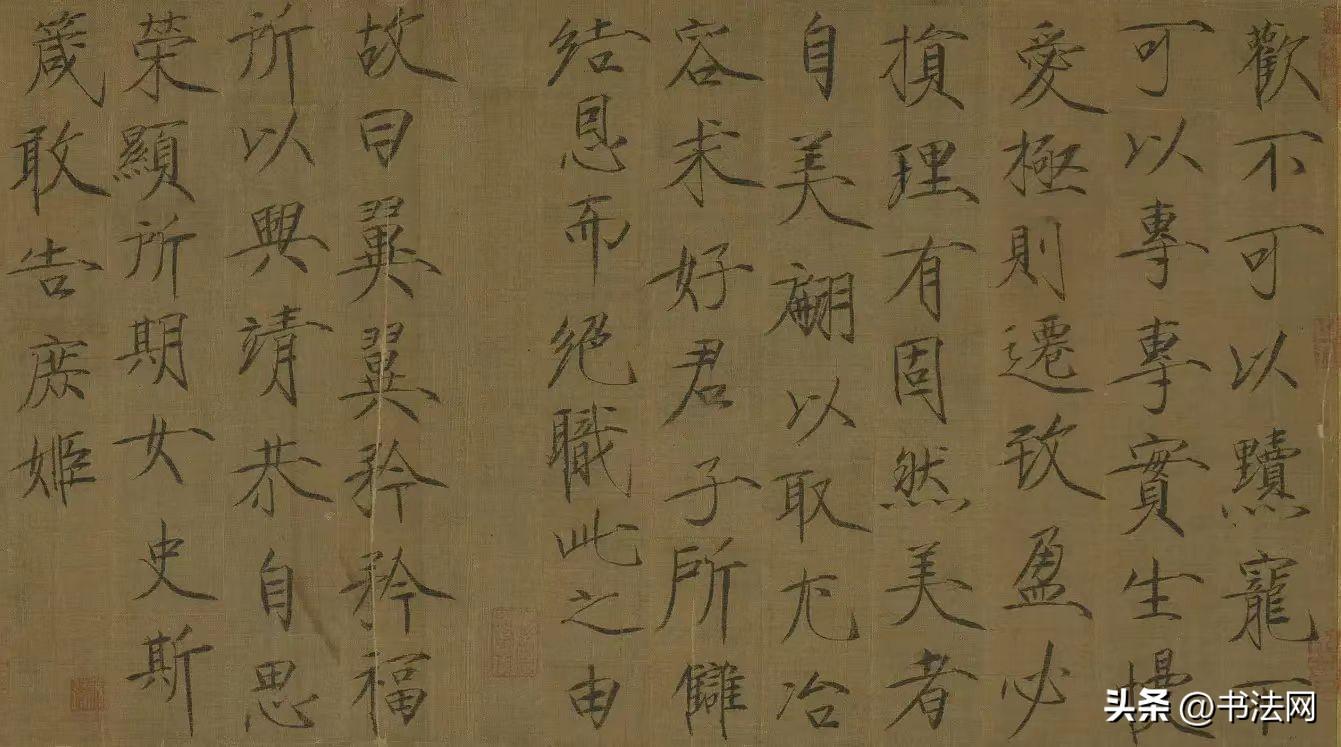 歡不可以黷寵不
可以專專實生慢
愛極則遷致盈必
損理有固然美者
自美翩以取尤冶
容求好君子所讎
結恩而絕職此之由
故曰翼翼矜矜福
所以興靖恭自思
榮顯所期女史斯
箴敢告庶姬
头条 @书法网